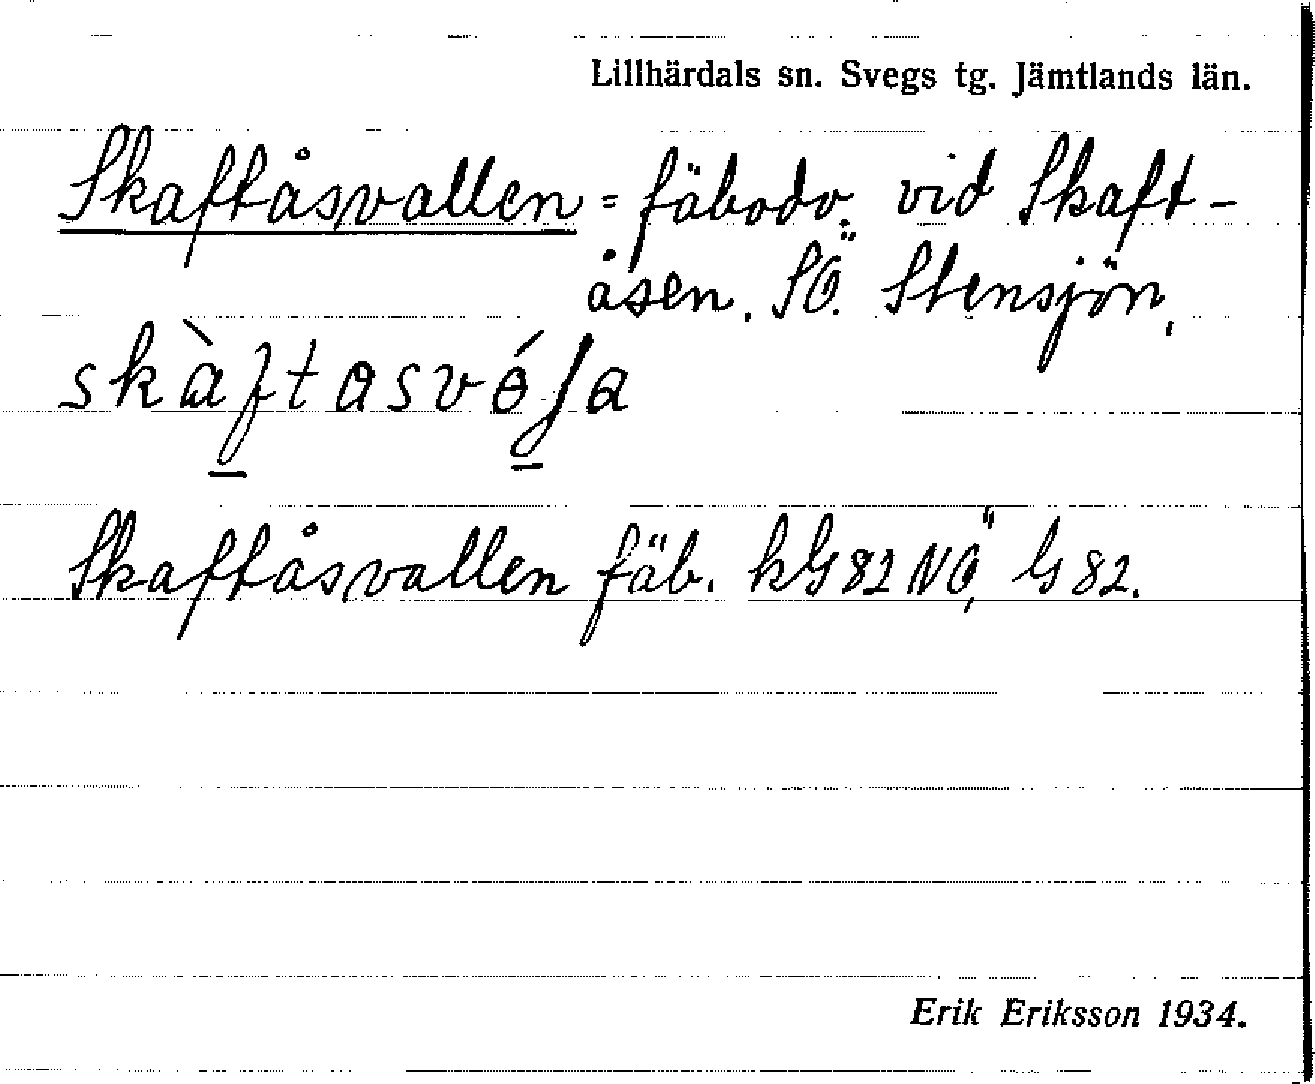 Lillhärdals sn. Svegs tg. Jämtlands län.
Skaftåsvallen = fäbodv. vid Skaft-
åsen. SÖ. Stensjön,
Skaftåsvallen fäb. kG82NÖ, G82.
Erik Eriksson 1934.